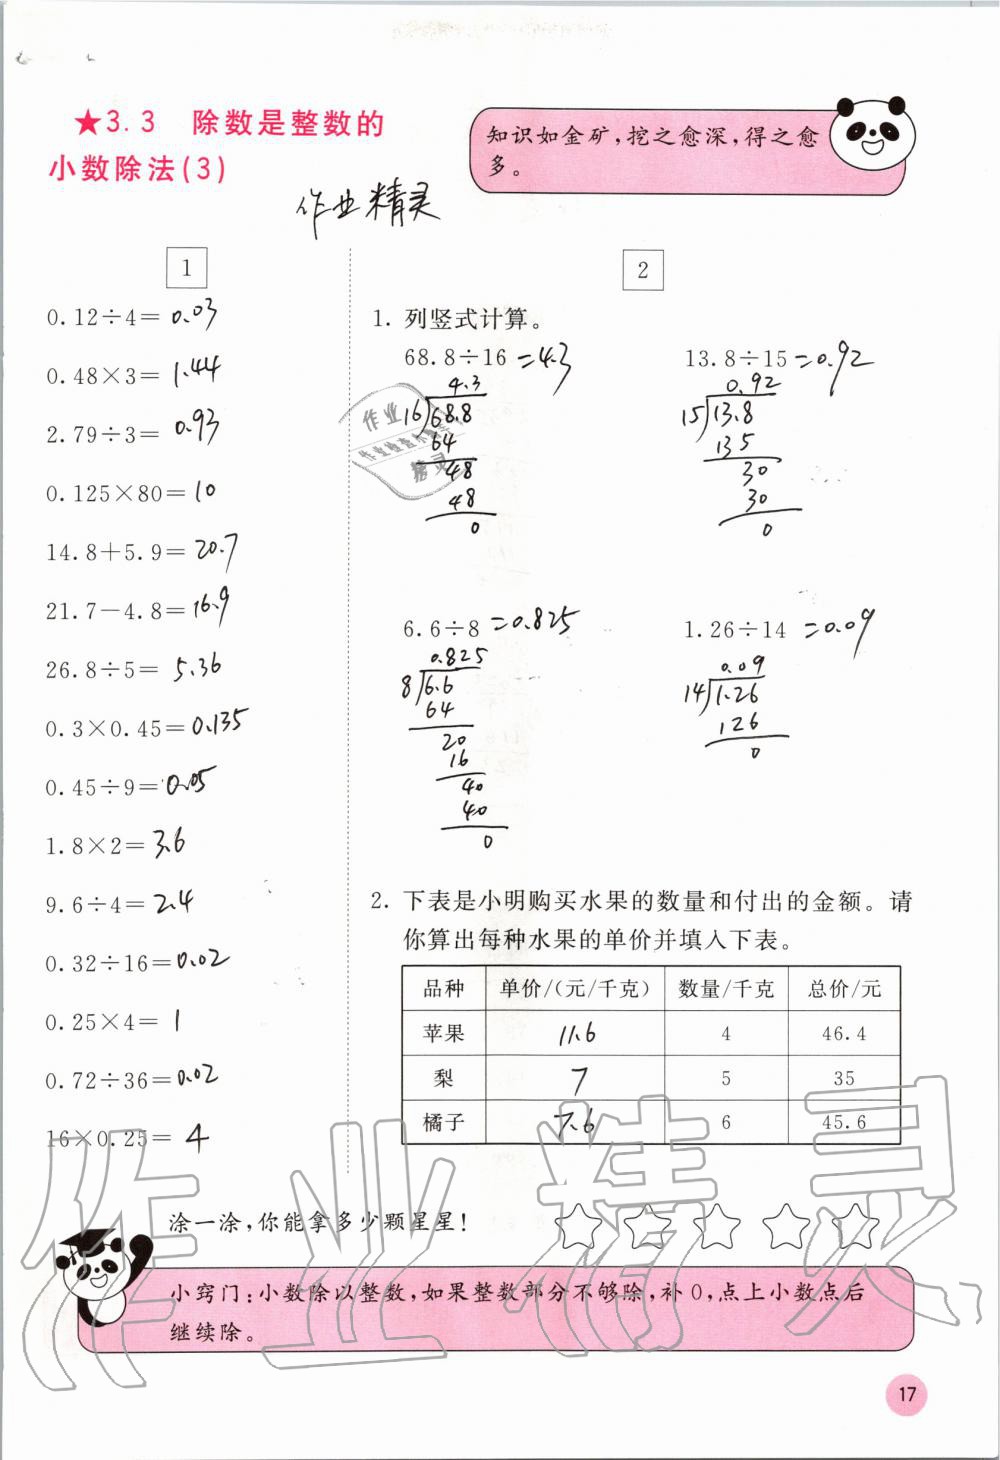 ★3.3 除数是整数的
小数除法(3)
知识如金矿,挖之愈深,得之愈
多。
作业精灵
1
0.12÷4=0.03
0.48×3=1.44
2.79÷3=0.93
0.125×80=10
14.8+5.9=20.7
21.7-4.8=16.9
26.8÷5=5.36
0.3×0.45=0.135
0.45÷9=0.05
1.8×2=3.6
9.6÷4=2.4
0.32÷16=0.02
0.25×4=1
0.72÷36=0.02
16×0.25=4
2
1. 列竖式计算。
68.8÷16=4.3 13.8÷15=0.92
4.3
16 68.8
64
48
48
0
0.92
15 13.8
135
30
30
0
6.6÷8=0.825 1.26÷14=0.09
0.825
8 6.6
64
20
16
40
40
0
0.09
14 1.26
126
0
2. 下表是小明购买水果的数量和付出的金额。请
你算出每种水果的单价并填入下表。
品种 单价/(元/千克) 数量/千克 总价/元
苹果 11.6 4 46.4
梨 7 5 35
橘子 7.6 6 45.6
涂一涂,你能拿多少颗星星!
小窍门:小数除以整数,如果整数部分不够除,补0,点上小数点后
继续除。
17
作业精灵